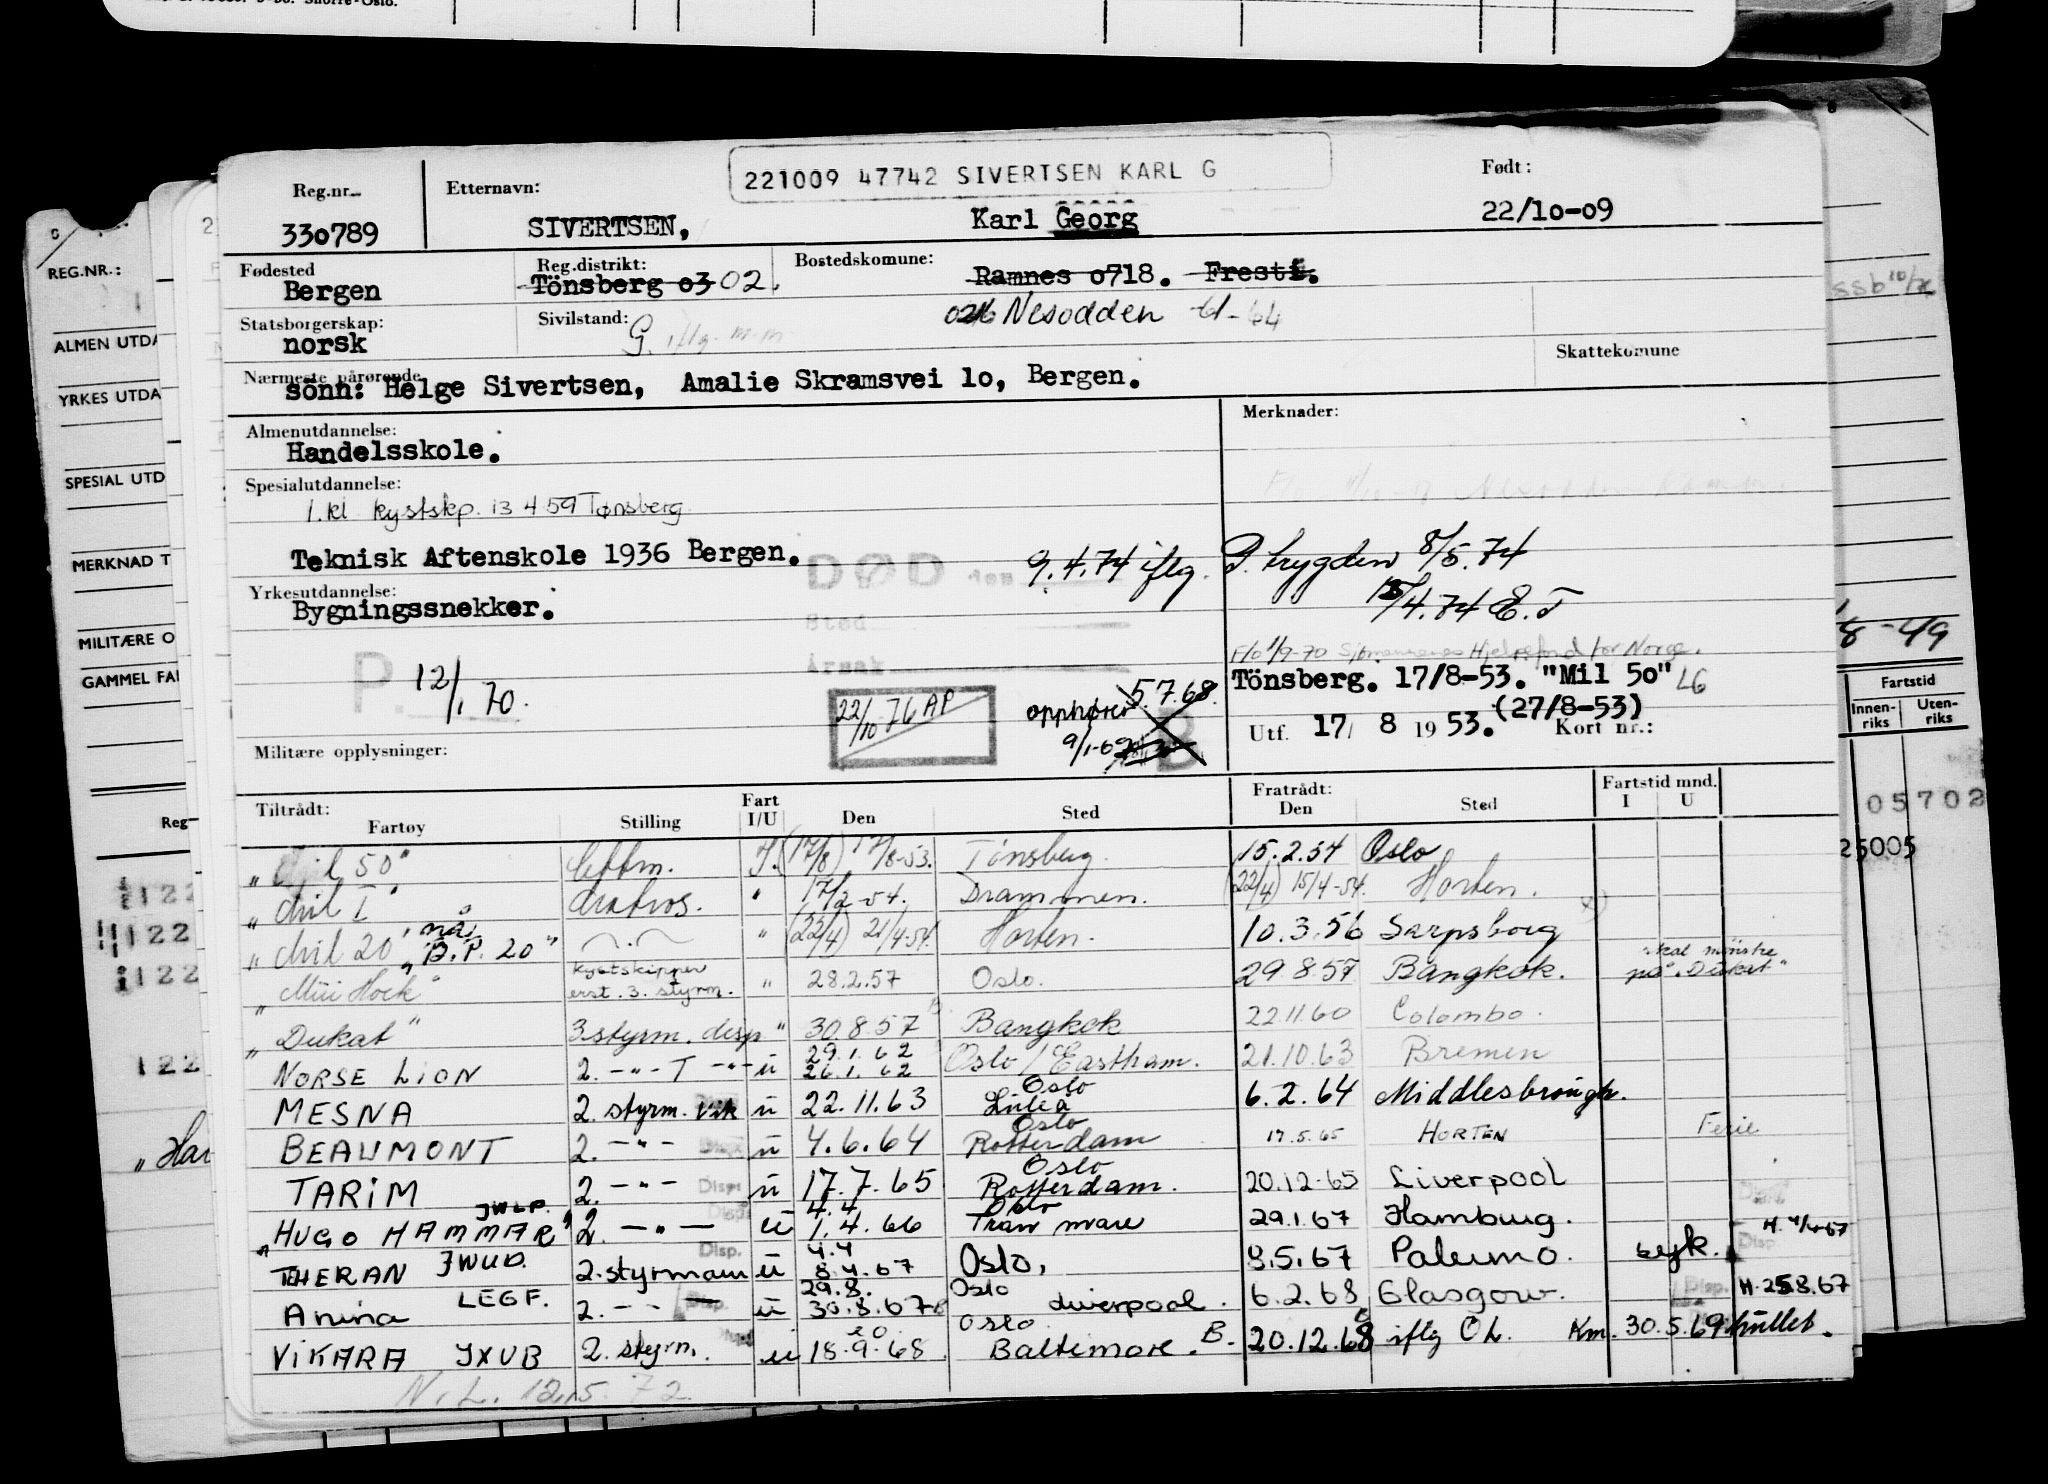 221009 47742 SIVERTSEN KARL G
Reg.nr.
Etternavn:
Født:
330789
SIVERTSEN,
Karl Georg
22/10-09
Fødested
Reg.distrikt:
Bostedskomune:
Bergen
Tönsberg 03 02.
Ramnes 0718. Fresti.
Statsborgerskap:
Sivilstand:
026 Nesodden 61-64
norsk
G. iflg. m.m
Skattekomune
Nærmeste pårørende
sönn: Helge Sivertsen, Amalie Skramsvei 10, Bergen.
Almenutdannelse:
Merknader:
Handelsskole.
Spesialutdannelse:
1.kl kystskp. 13 4 59 Tønsberg
Teknisk Aftenskole 1936 Bergen.
DØD
9.4.74 iflg. P. trygden 8/5.74
Yrkesutdannelse:
Bygningssnekker.
/4.74 E.T
Sted
Årsak
F/o 1/9-70 Sjømennenes Hjelpefond for Norge.
P. 12/1.70.
Tönsberg. 17/8-53. "Mil 50" LG
22/10 76 AP
opphører 5.7.68.
(27/8-53)
9/1-69
B
Utf. 17/ 8 1953. Kort nr.:
Militære opplysninger:
Tiltrådt:
Fartøy
Stilling
Fart I/U
Den
Sted
Fratrådt: Den
Sted
Fartstid mnd. I U
"Mil 50" lettm. I. (17/8) 17/8-53. Tönsberg. 15.2.54 Oslo
"Mil I" Matros. " 17/2-54. Drammen. (22/4) 15/4-54. Horten.
"Mil 20" nå "B.P. 20" " (22/4) 21/4-54. Horten. 10.3.56 Sarpsborg x)
Hock" kystskipper erst. 3. styrm. " 28.2.57 Oslo. 29 8.57 Bangkok. skal mønstre på "Dukat"
"Dukat" 3.styrm. disp " 30.8.57 Bangkok 22.11.60 Colombo.
NORSE LION 2. -"- T -"- u 29.1.62 26.1.62 Oslo / Eastham. 21.10.63 Bremen
MESNA 2. styrm. vik u 22.11.63 Oslo Luleå 6.2.64 Middlesbrough.
BEAUMONT 2. -"- Disp. u 4.6.64 Oslo Rotterdam 17.5.65 HORTEN Ferie
TARIM 2. -"- Disp. u 17.7.65 Oslo Rotterdam. 20.12.65 Liverpool
"HUGO HAMMAR" JWLP. 2. -"- Disp. u 4.4 1.4.66 Oslo Tranmare 29.1.67 Hamburg. H. 4/4-67
THERAN JWUD. 2.styrmann Disp. u 4.4 8.4.67 Oslo, 8.5.67 Palermo. syk. Disp
Anina LEGF. 2. -- Disp. u 29.8. 30.8.67 Oslo Liverpool. 6.2.68 Glasgow. Disp. H. 25.8.67
VIKARA JXUB 2. styrm. u 20 18.9.68 Oslo Baltimore. B. 20.12.68 iflg OL. Km. 30.5.69
N.L. 12.5. 72.
REG.NR.:
ALMEN UTDA
YRKES UTDA
SPESIAL UTD
MERKNAD T
MILITÆRE O
GAMMEL FA
Reg
122
122
122
122
"Har
8-49
Fartstid
Innen-riks
Uten-riks
05702
25005